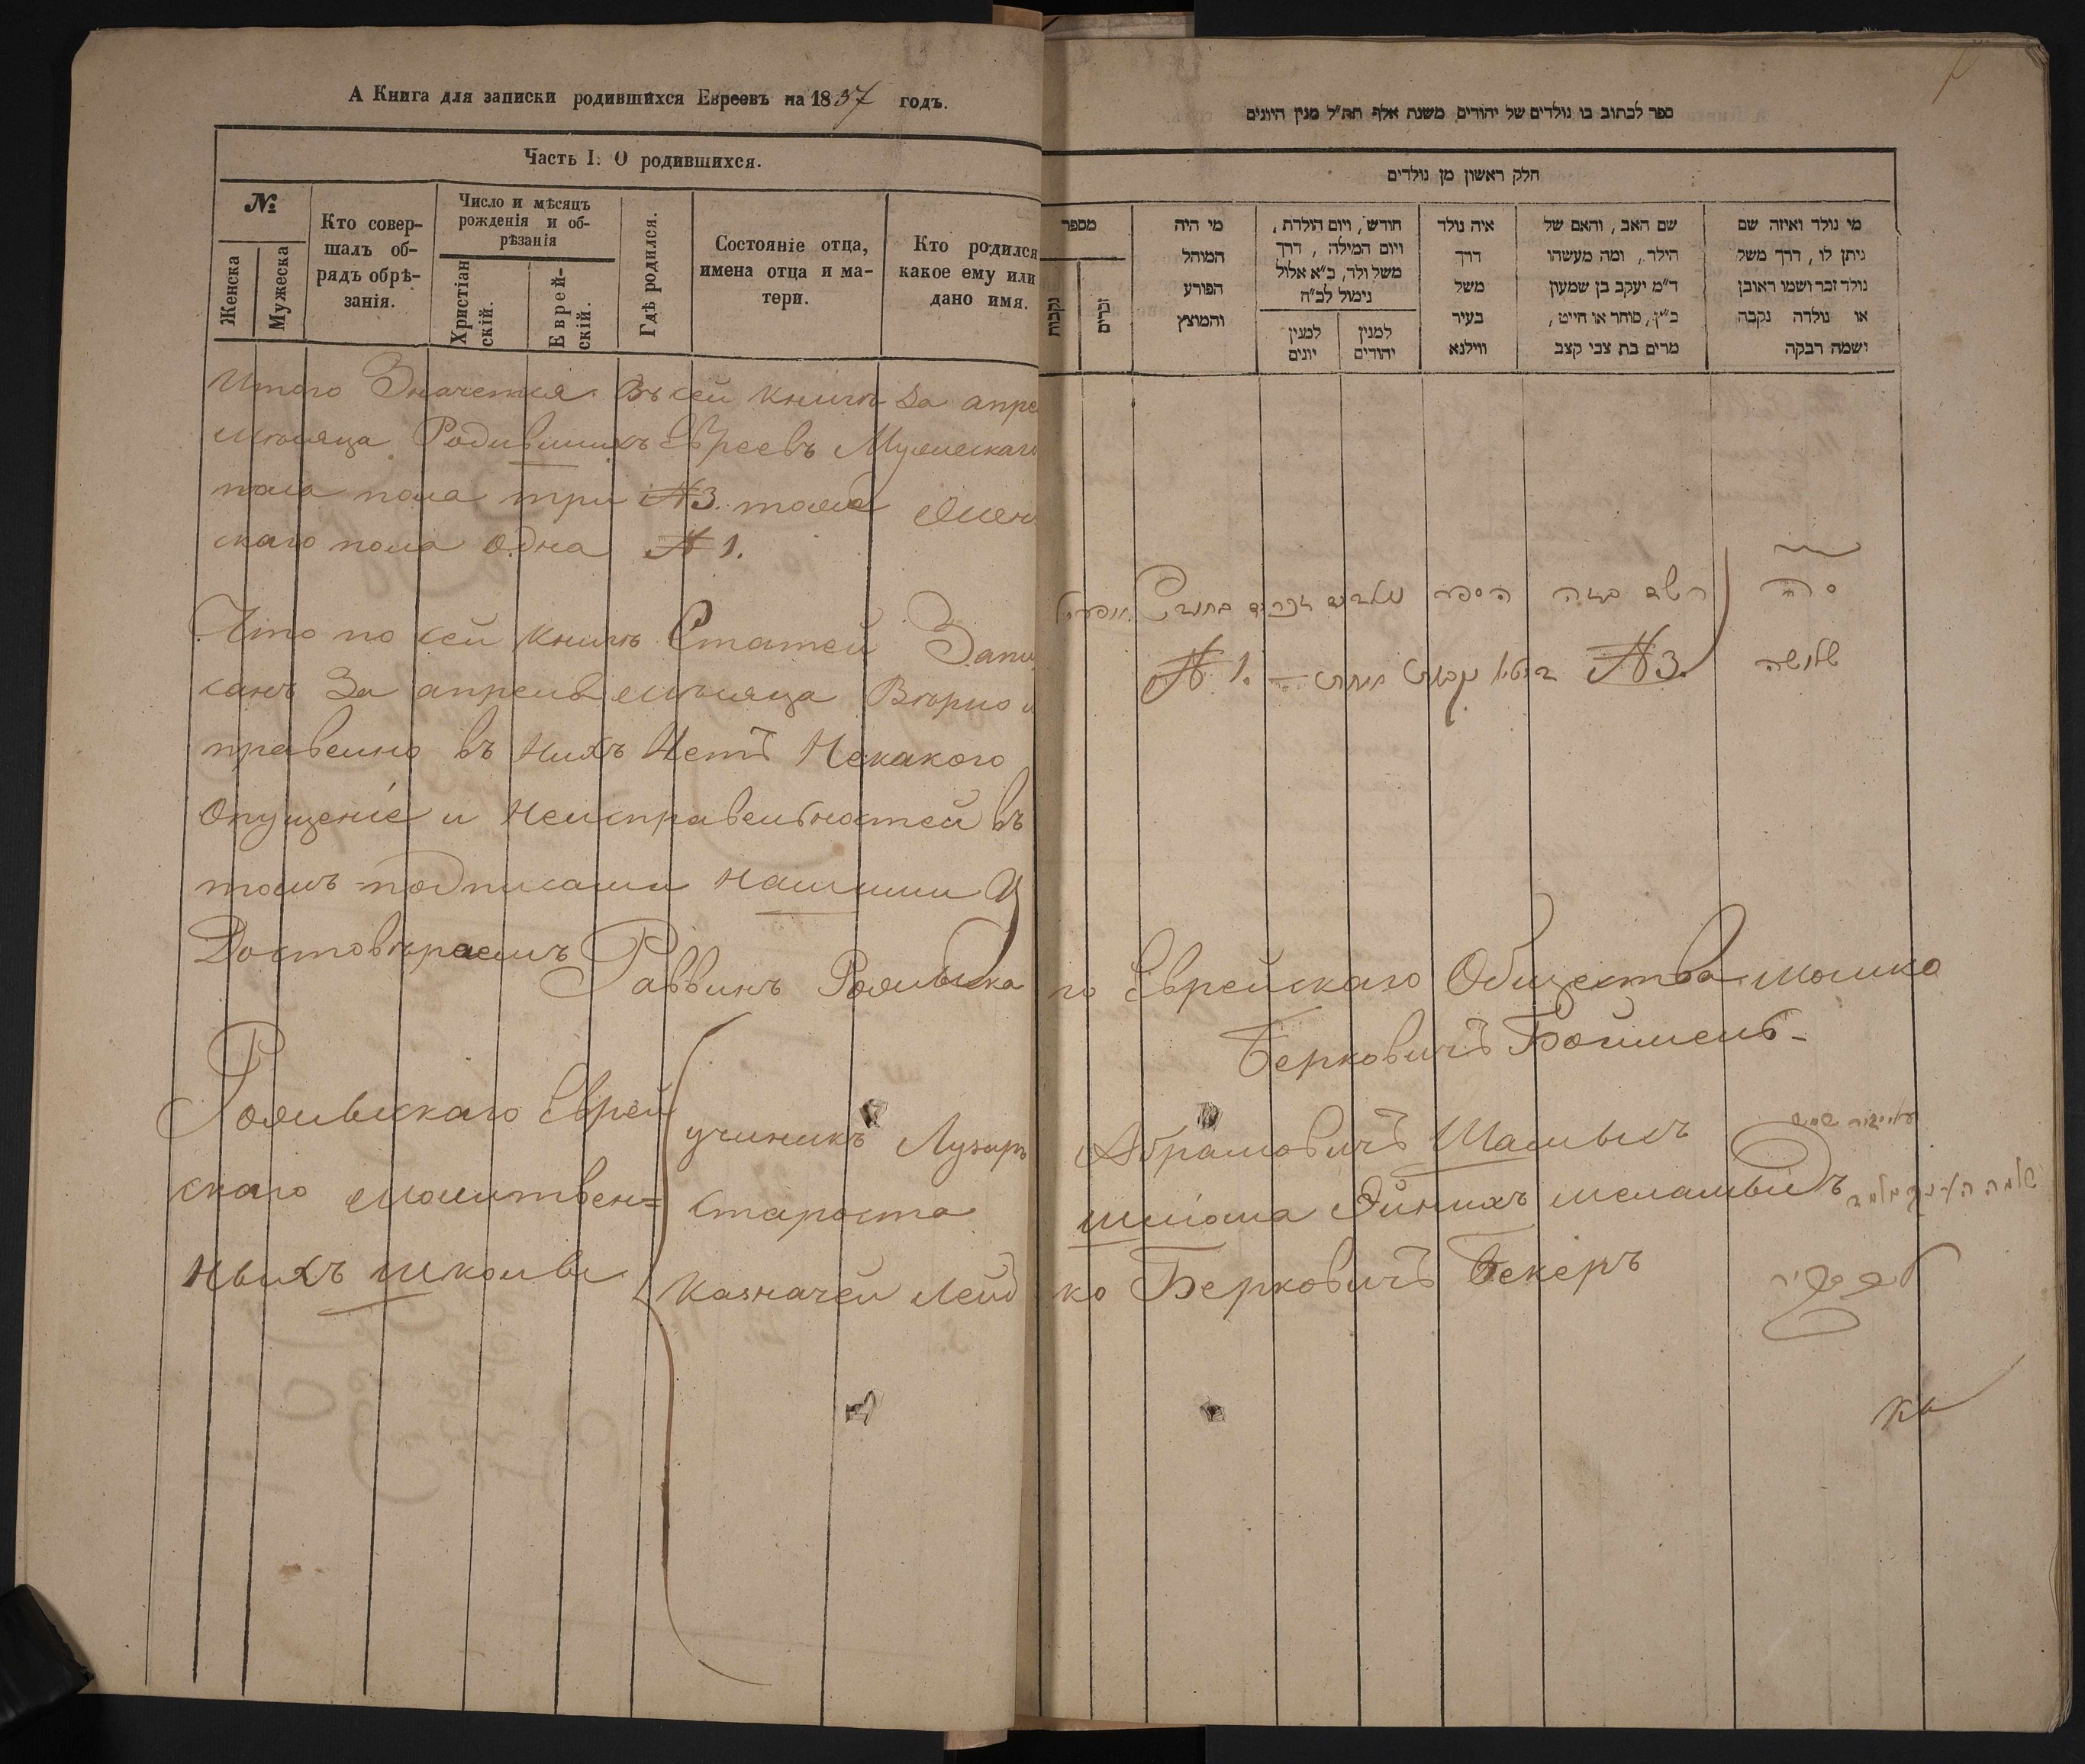 А Книга для записки родившихся Евреевъ на 1837 годъ.
Часть I. О родившихся.
№
Женска
Мужеска
Кто совер-
шалъ об-
рядъ обрѣ-
занія.
Число и мѣсяцъ
рожденія и об-
рѣзанія
Христіан
скій.
Еврей-
скій.
Гдѣ родился.
Состояніе отца,
имена отца и ма-
тери.
Кто родился
какое ему или
дано имя.
Итого Значется въ сей книги за апре
мѣсяца Родившихъ Евреевъ Мужескаго
пола три №3. тоже Жен
скаго пола одна № 1.
Что по сей книгѣ Статей Запи
санъ За апрель мѣсяца Вѣрно и
правелно въ нихъ Нетъ Некакого
Опущеніе и неисправельностей въ
томъ подписами нашими У
Достовѣраемъ
Раввинъ
го Еврейскаго Общества мошко
Берковичъ
Еврей
скаго молитвен=
ныхъ школы
учиникъ Лузеръ Абрамовичъ Шамысъ
Староста Шліома
казначей Лейб ко Берковичъ Бекеръ
ספר לכתוב בו נולדים של יהודים, משנת אלף תת״ל מנין היונים
חלק ראשון מן נולדים
מספר
נקבות
זכרים
מי היה
המוהל
הפורע
והמוצץ
חודש, ויום הולדת,
ויום המילה, דרך
משל ולד, ב״א אלול
נימול לכ״ח
למנין
יונים
למנין
יהודים
איה נולד
דרך
משל
בעיר
ווילנא
שם האב, והאם של
הילד, ומה מעשהו
ד״מ יעקב בן שמעון
כ״ץ, סוחר או חייט,
מרים בת צבי קצב
מי נולד ואיזה שם
ניתן לו, דרך משל
נולד זכר ושמו ראובן
או נולדה נקבה
ושמה רבקה
סה
הספר
שלושה
№ 3.
№ 1.